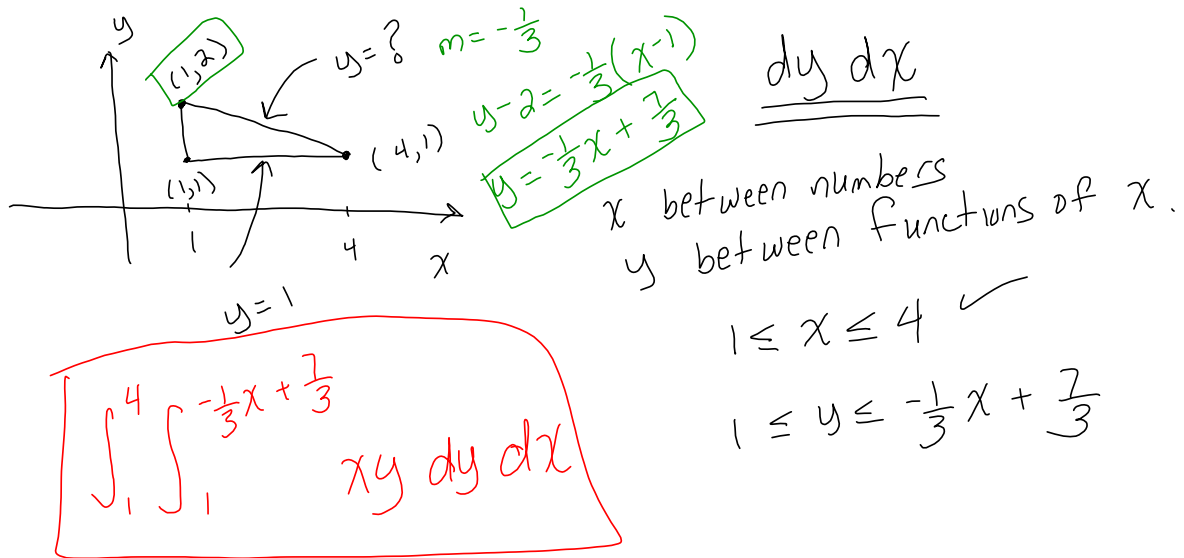 y
(1,2)
y = ?
(4,1)
(1,1)
1
4
x
y = 1
m = -1/3
y - 2 = -1/3 (x - 1)
y = -1/3 x + 7/3
dy dx
x between numbers
y between functions of x.
1 ≤ x ≤ 4 ✓
1 ≤ y ≤ -1/3 x + 7/3
∫_1^4 ∫_1^{-1/3 x + 7/3} xy dy dx